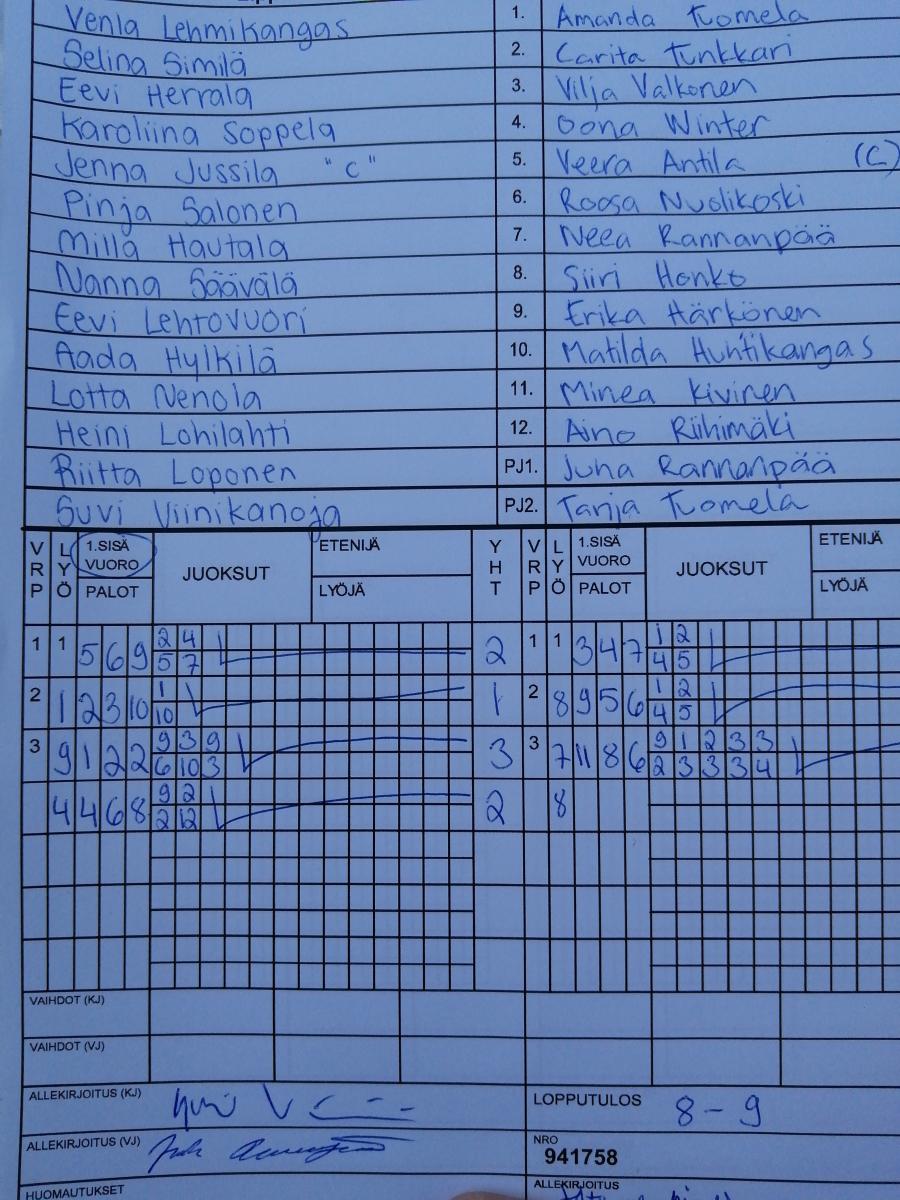 Venla Lehmikangas 1. Amanda Tuomela
Selina Similä 2. Carita Tunkkari
Eevi Herrala 3. Vilja Valkonen
Karoliina Soppela 4. Oona Winter
Jenna Jussila "C" 5. Veera Antila (C)
Pinja Salonen 6. Roosa Nuolikoski
Milla Hautala 7. Neea Rannanpää
Nanna Säävälä 8. Siiri Honko
Eevi Lehtovuori 9. Erika Härkönen
Aada Hylkilä 10. Matilda Huhtikangas
Lotta Nenola 11. Minea Kivinen
Heini Lohilahti 12. Aino Riihimäki
Riitta Loponen PJ1. Juha Rannanpää
Suvi Viinikanoja PJ2. Tarija Tuomela
VRP LYÖ 1.SISÄ VUORO PALOT JUOKSUT ETENIJÄ LYÖJÄ YHT VRP LYÖ 1.SISÄ VUORO PALOT JUOKSUT ETENIJÄ LYÖJÄ
2 4 1 2
1 1 5 6 9 2 1 1 3 4 7
5 7 4 5
1 1 2
2 1 2 3 10 1 2 8 9 5 6
10 4 5
9 3 9 9 1 2 3 3
3 9 1 2 2 3 3 7 11 8 6
6 10 3 2 3 3 3 4
9 2
4 4 6 8 2 8
2 12
VAIHDOT (KJ)
VAIHDOT (VJ)
ALLEKIRJOITUS (KJ) LOPPUTULOS 8 - 9
ALLEKIRJOITUS (VJ) NRO
941758
HUOMAUTUKSET ALLEKIRJOITUS